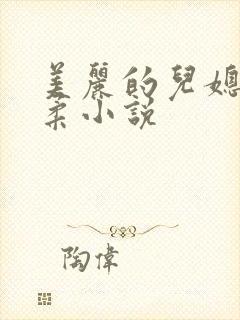 美麗的兒媳
柔小説
陶偉